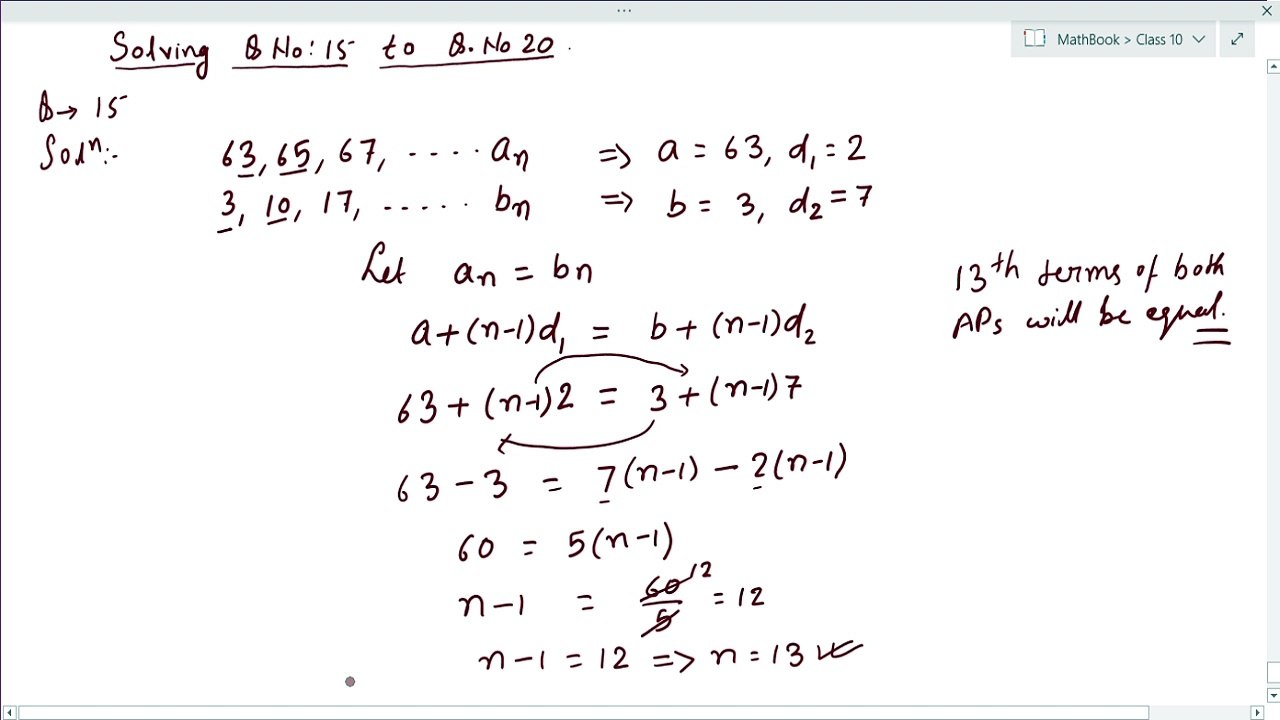 MathBook > Class 10
Solving Q No: 15 to Q. No 20.
Q→ 15
Solⁿ:-
63, 65, 67, ····· aₙ ⇒ a = 63, d₁ = 2
3, 10, 17, ...... bₙ ⇒ b = 3, d₂ = 7
Let aₙ = bₙ
a+(n-1)d₁ = b+(n-1)d₂
63+(n-1)2 = 3+(n-1)7
63-3 = 7(n-1) - 2(n-1)
60 = 5(n-1)
n-1 = 60/5 12 = 12
n-1 = 12 => n = 13
13th terms of both
APs will be equal.